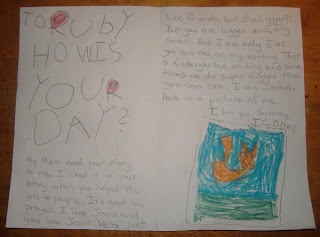 TO RUBY
HOW IS
YOUR
DAY?
My Mom read your story
to me. I liked it in your
story when you helped the
white people. It's good you
prayed. I love Jesus and
you love Jesus. We're just
like friends, but stuck apart.
But you are bigger and, only
small. And I am only 6 as
you can see on my writing. That
is Kindergarten writing and some
times we do super
you can see. I am Isabel.
Here is a picture of me.
I love you. Sincerely,
ISOBEL